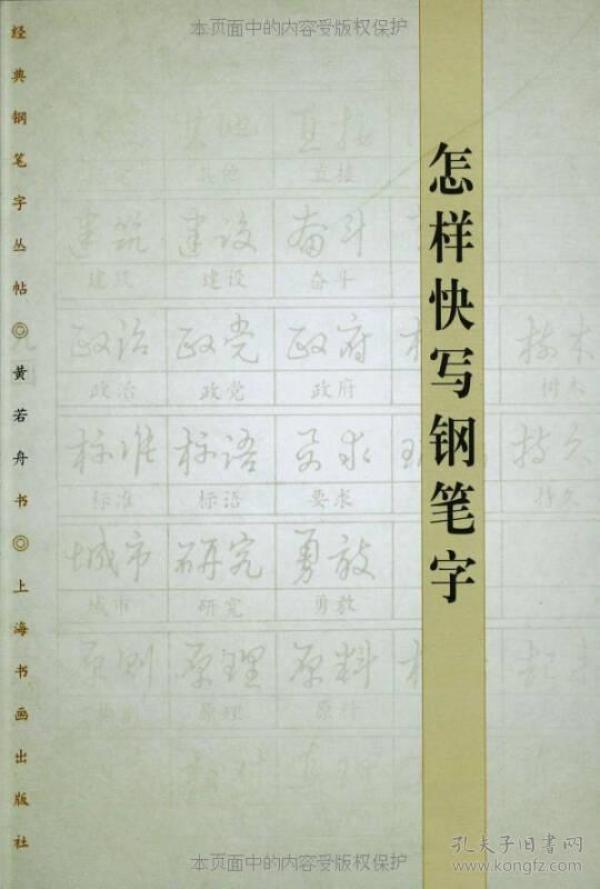 本页面中的内容受版权保护
经典钢笔字丛帖◎黄若舟书◎上海书画出版社
怎样快写钢笔字
其他 直接
其他 直接
建筑 建设 奋斗
建筑 建设 奋斗
政治 政党 政府 树木
政治 政党 政府 树木
标准 标语 要求 持久
标准 标语 要求 持久
城市 研究 勇敢
城市 研究 勇敢
原则 原理 原料
原则 原理 原料
真理
本页面中的内容受版权保护
孔夫子旧书网
www.kongfz.com